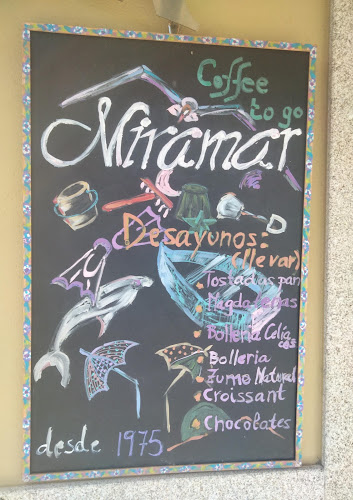 Coffee
to go
Miramar
Desayunos:
(llevar)
Tostadas pan
Magdalenas
Bolleria Celía
cos
Bolleria
Zumo Natural
Croissant
Chocolates
desde 1975